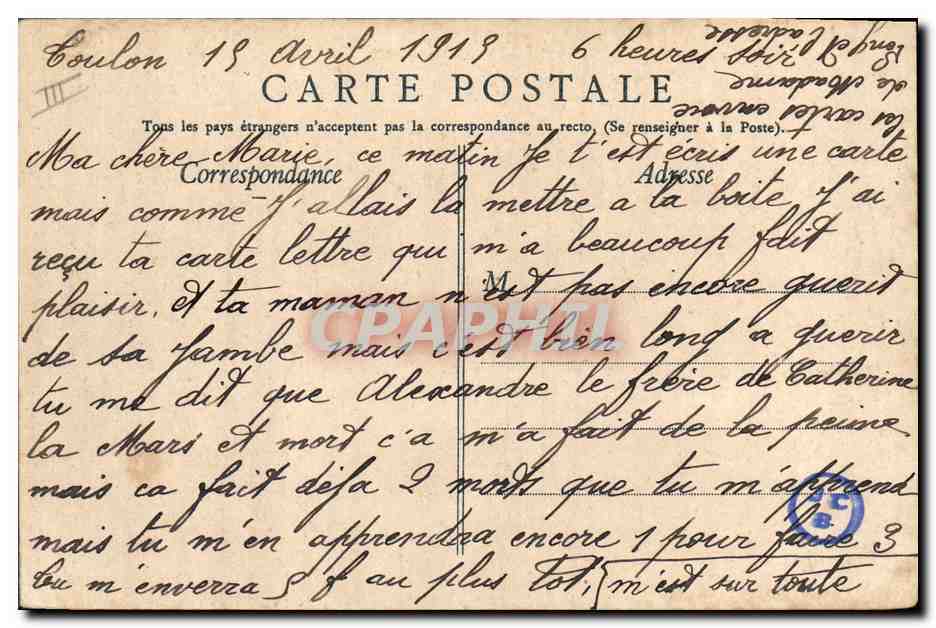 Toulon 15 Avril 1915 6 heures soir
CARTE POSTALE
Tous les pays étrangers n'acceptent pas la correspondance au recto, (Se renseigner à la Poste).
Correspondance
Adresse
M
Ma chère Marie, ce matin Je t'est écris une carte
mais comme J'allais la mettre a la boite J'ai
reçu ta carte lettre qui m'a beaucoup fait
plaisir, et ta maman n'est pas encore guerit
de sa Jambe mais c'est bien long a guerir
tu me dit que Alexandre le frère de Catherine
la Mars et mort c'a m'a fait de la peine
mais ca fait déja 2 morts que tu m'apprend
mais tu m'en apprendra encore 1 pour faire 3
tu m'enverra 5 f au plus tot,
met sur toute
les cartes envoie
de Madame
et l'adresse
III
JCB
CPAPHIL